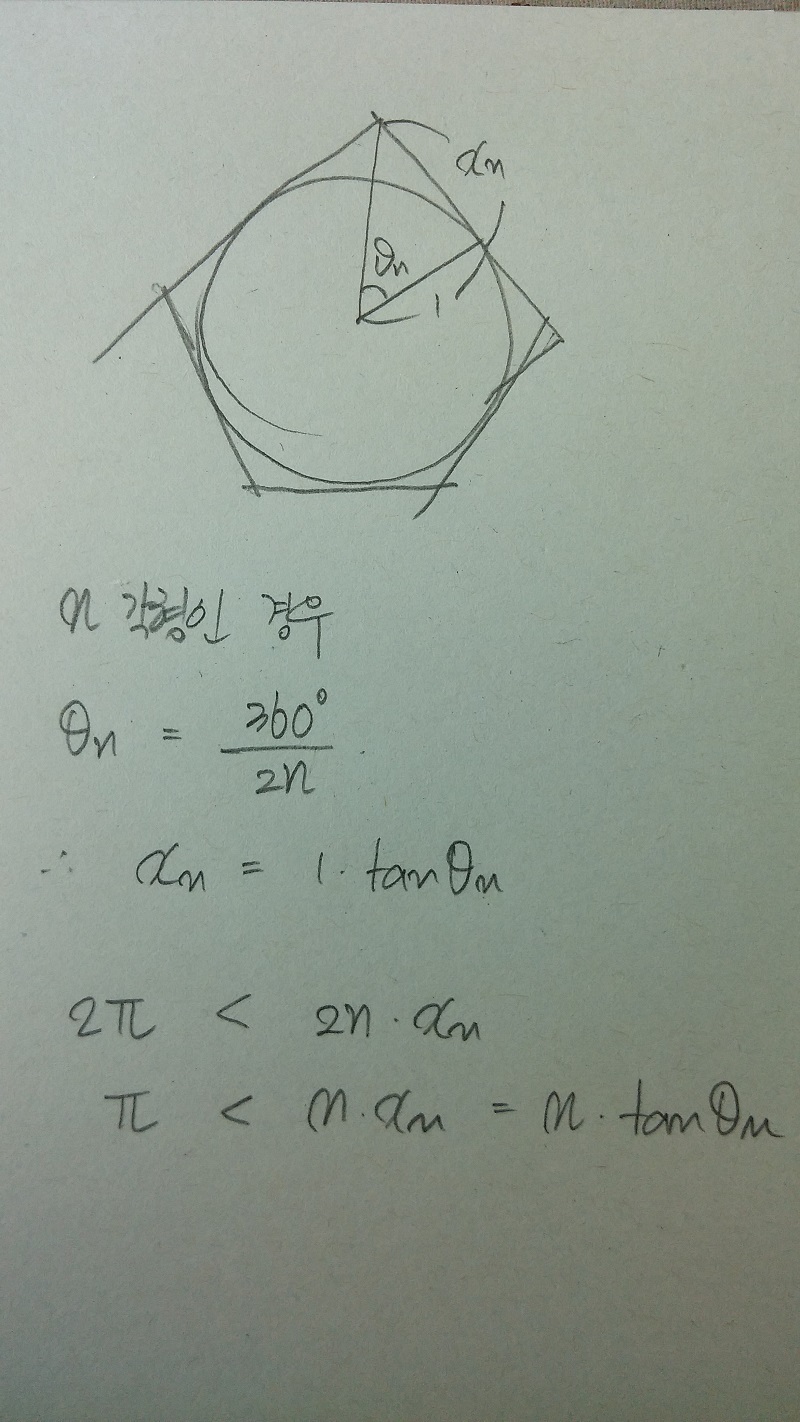 xₙ
θₙ
1
n 각형인 경우
θₙ = 360° / 2n
∴ xₙ = 1 · tan θₙ
2π < 2n · xₙ
π < n · xₙ = n · tan θₙ